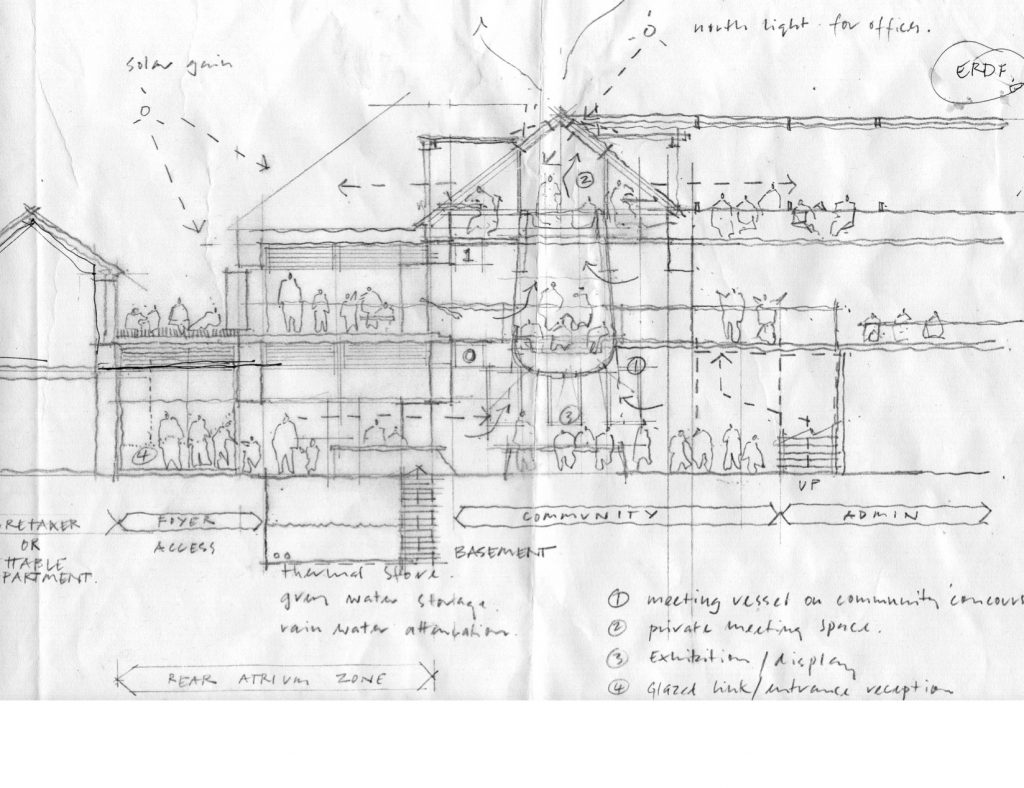 north light for offices.
solar gain
ERDF.
2
1
0
1
3
4
UP
RETAKER
OR
TTABLE
PARTMENT.
FOYER
ACCESS
COMMUNITY
ADMIN
BASEMENT
thermal store.
grey water storage.
rain water attenuation.
REAR ATRIUM ZONE
1 meeting vessel on community concours
2 private meeting space.
3 Exhibition/display
4 Glazed link/entrance reception